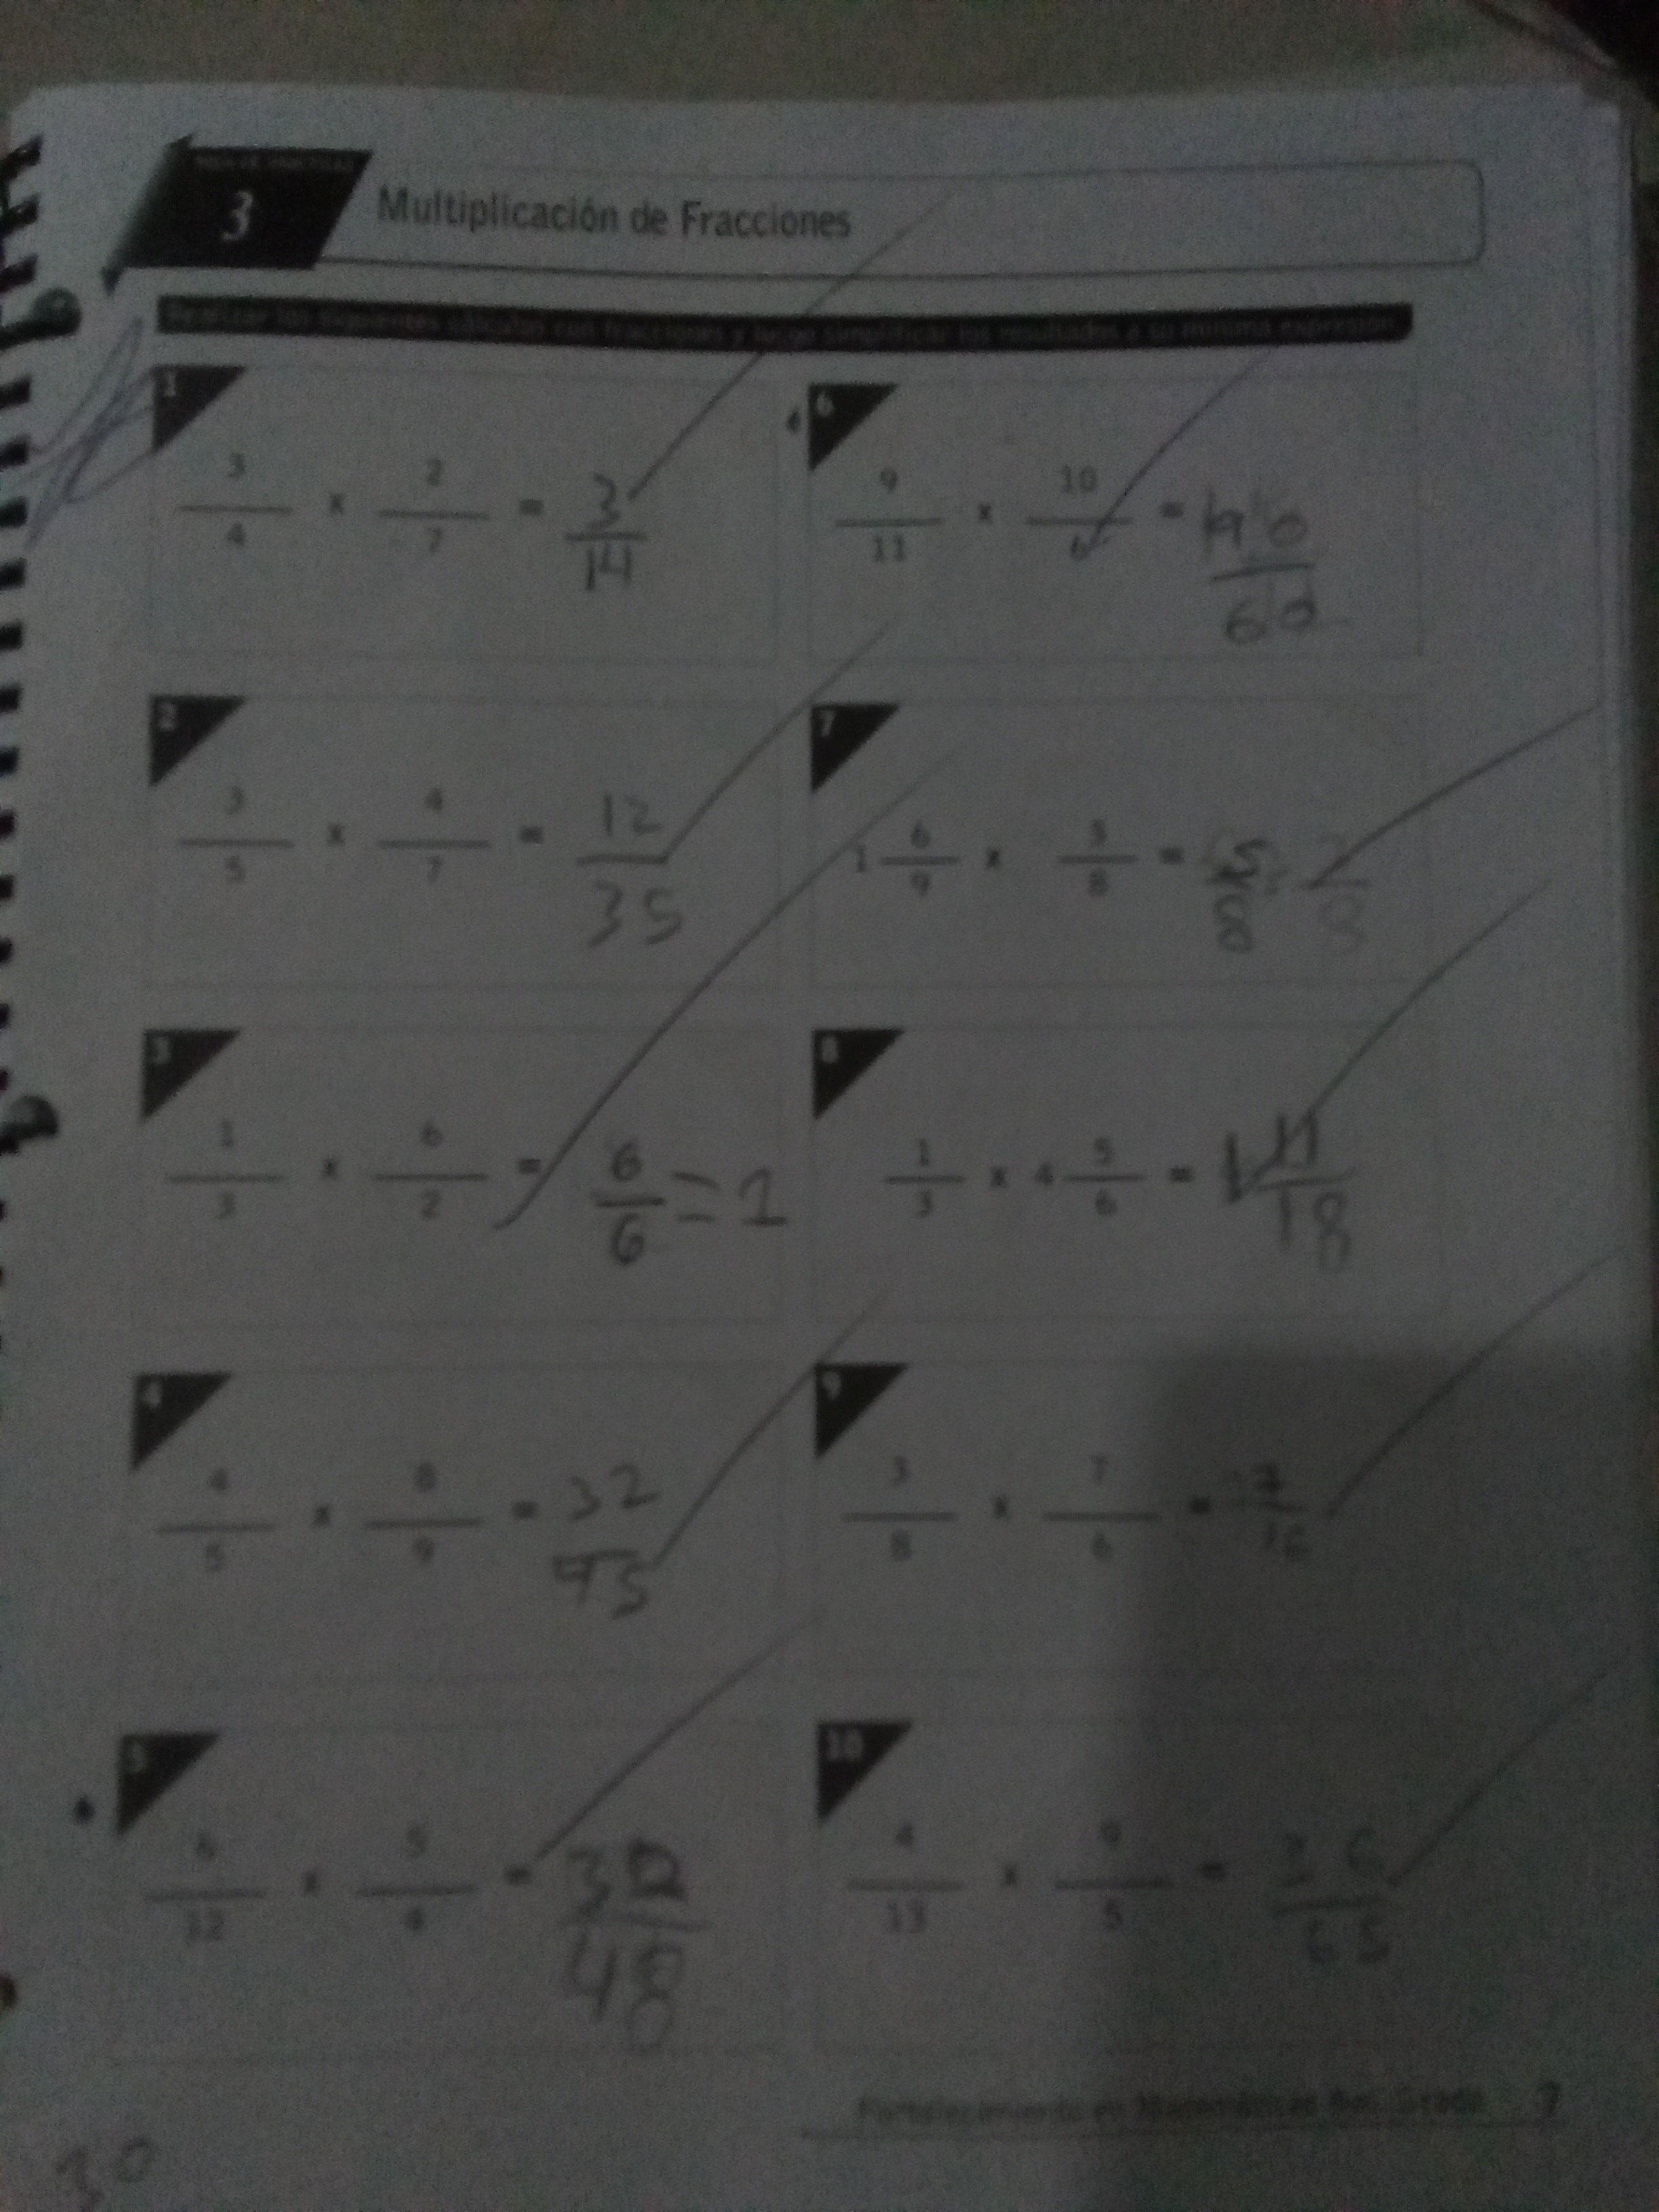 3
Multiplicación de Fracciones
Realizar los siguientes cálculos con fracciones y luego simplificar los resultados a su mínima expresión.
1
3/4 x 2/7 = 3/14
2
3/5 x 4/7 = 12/35
3
1/3 x 6/2 = 6/6 = 1
4
4/5 x 8/9 = 32/45
5
6/12 x 5/4 = 30/48
6
9/11 x 10/6 =
7
1 6/9 x 3/8 =
8
1/3 x 4 5/6 = 1 11/18
9
3/8 x 7/6 = 7/16
10
4/13 x 9/5 = 36/65
Fortalecimiento en Matemáticas Grado 7
30